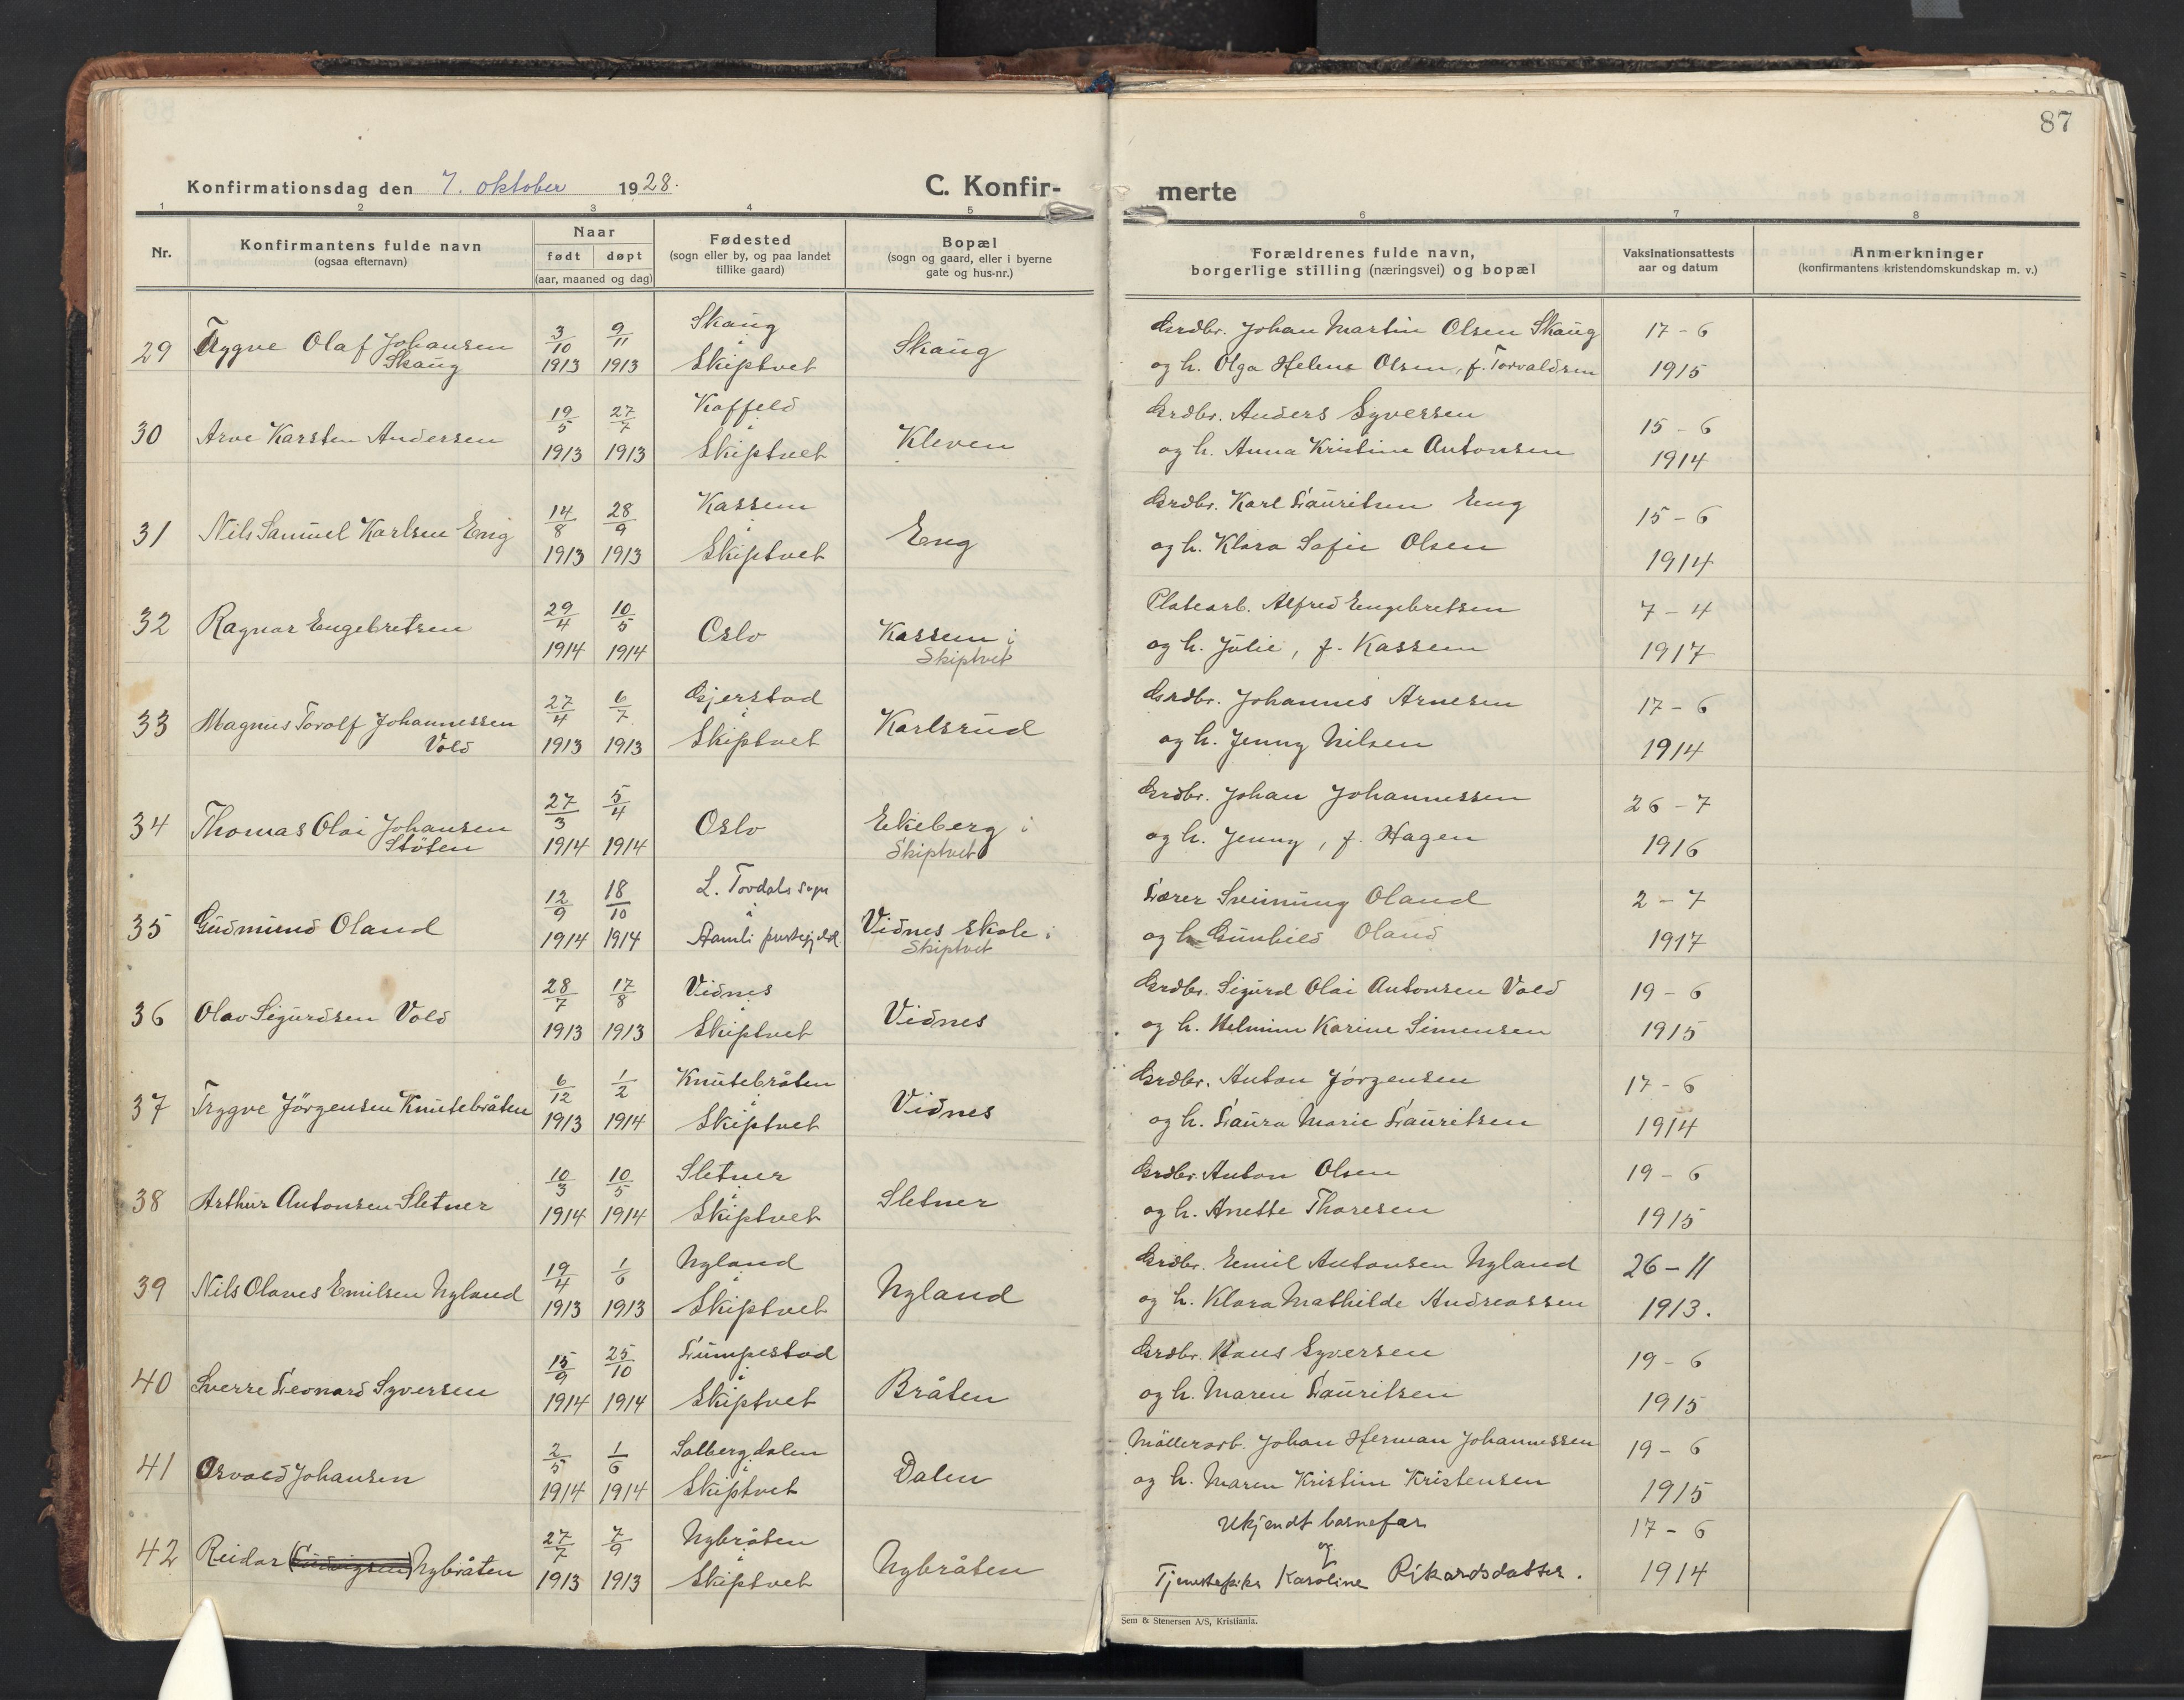 87
Konfirmationsdag den 7. oktober 1928.
C. Konfir-
merte
1 2 3 4 5 6 7 8
Nr.
Konfirmantens fulde navn
(ogsaa efternavn)
Naar
født døpt
(aar, maaned og dag)
Fødested
(sogn eller by, og paa landet
tillike gaard)
Bopæl
(sogn og gaard, eller i byerne
gate og hus-nr.)
Forældrenes fulde navn,
borgerlige stilling (næringsvei) og bopæl
Vaksinationsattests
aar og datum
Anmerkninger
(konfirmantens kristendomskundskap m. v.)
29 Trygve Olaf Johansen Skaug 3/10 1913 9/11 1913 Skaug i Skiptvet Skaug
Grdbr. Johan Martin Olsen Skaug 17-6
og h. Olga Helene Olsen, f. Torvaldsen 1915
30 Arve Karsten Andersen 19/5 1913 27/7 1913 Koffeld i Skiptvet Kleven
Grdbr. Anders Syversen 15-6
og h. Anna Kristine Antonsen 1914
31 Nils Samuel Karlsen Eng 14/8 1913 28/9 1913 Kassem i Skiptvet Eng
Grdbr. Karl Lauritsen Eng 15-6
og h. Klara Sofie Olsen 1914
32 Ragnar Engebretsen 29/4 1914 10/5 1914 Oslo Kassem i Skiptvet
Platearb. Alfred Engebretsen 7-4
og h. Julie, f. Kassem 1917
33 Magnus Torolf Johannessen Vold 27/4 1913 6/7 1913 Gjerstad i Skiptvet Karlsrud
Grdbr. Johannes Arnesen 17-6
og h. Jenny Nilsen 1914
34 Thomas Olai Johansen Støten 27/3 1914 5/4 1914 Oslo Ekeberg i Skiptvet
Grdbr. Johan Johannessen 26-7
og h. Jenny, f. Hagen 1916
35 Gudmund Oland 12/9 1914 18/10 1914 L. Tovdals sogn i Aamli prestegjeld Vidnes skole i Skiptvet
Lærer Sveinung Oland 2-7
og h. Gunhild Oland 1917
36 Olav Sigurdsen Vold 28/7 1913 17/8 1913 Vidnes i Skiptvet Vidnes
Grdbr. Sigurd Olai Antonsen Vold 19-6
og h. Helmine Karine Simensen 1915
37 Trygve Jörgensen Knutebråten 6/12 1913 1/2 1914 Knutebråten i Skiptvet Vidnes
Grdbr. Anton Jörgensen 17-6
og h. Laura Marie Lauritsen 1914
38 Arthur Antonsen Sletner 10/3 1914 10/5 1914 Sletner i Skiptvet Sletner
Grdbr. Anton Olsen 19-6
og h. Anette Thoresen 1915
39 Nils Olaves Emilsen Nyland 19/4 1913 1/6 1913 Nyland i Skiptvet Nyland
Grdbr. Emil Antonsen Nyland 26-11
og h. Klara Mathilde Andreassen 1913.
40 Sverre Leonard Syversen 15/9 1914 25/10 1914 Lumpestad i Skiptvet Bråten
Grdbr. Hans Syversen 19-6
og h. Maren Lauritsen 1915
41 Osvald Johansen 2/5 1914 1/6 1914 Solbergdalen i Skiptvet Dalen
Möllerarb. Johan Herman Johannessen 19-6
og h. Maren Kristine Kristensen 1915
42 Reidar (Ludvigsen) Nybråten 27/7 1913 7/9 1913 Nybråten i Skiptvet Nybråten
Ukjendt barnefar 17-6
og
Tjenestepike Karoline Rikardsdatter. 1914
Sem & Stenersen A/S, Kristiania.